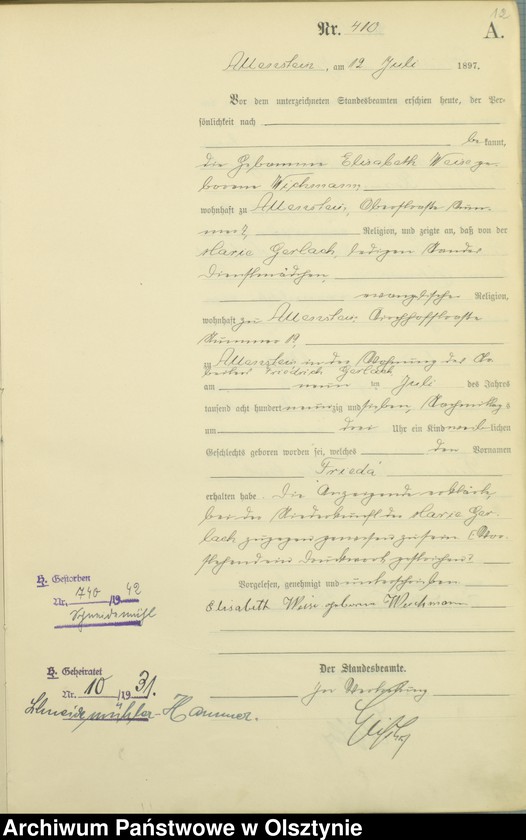 12
Nr. 410 A.
Allenstein, am 12 Juli 1897.
Vor dem unterzeichneten Standesbeamten erschien heute, der Per-
sönlichkeit nach
bekannt,
die Hebamme Elisabeth Weise ge-
borene Wichmann
wohnhaft zu Allenstein, Oberstraße Num-
mer
Religion, und zeigte an, daß von der
Marie Gerlach, ledigen Standes
Dienstmädchen,
evangelischer Religion,
wohnhaft zu Allenstein, Kirchhofstraße
Nummer
zu Allenstein in der Wohnung des Ar-
beiters Friedrich Gerlach
am neun ten Juli des Jahres
tausend acht hundert neunzig und sieben, Nachmittags
um drei Uhr ein Kind weiblichen
Geschlechts geboren worden sei, welches den Vornamen
Frieda
erhalten habe. Die Anzeigende erklärte,
bei der Niederkunft der Marie Ger-
lach zugegen gewesen zu sein. (Vor-
stehend ein Druckwort gestrichen.
Vorgelesen, genehmigt und unterschrieben
Elisabeth Weise geborne Wichmann
Der Standesbeamte.
In Vertretung
H. Gestorben
Nr. 740 /19 42
Schneidemühl
H. Geheiratet
Nr. 10 /19 31.
Schneidemühler-Hammer.
Archiwum Państwowe w Olsztynie